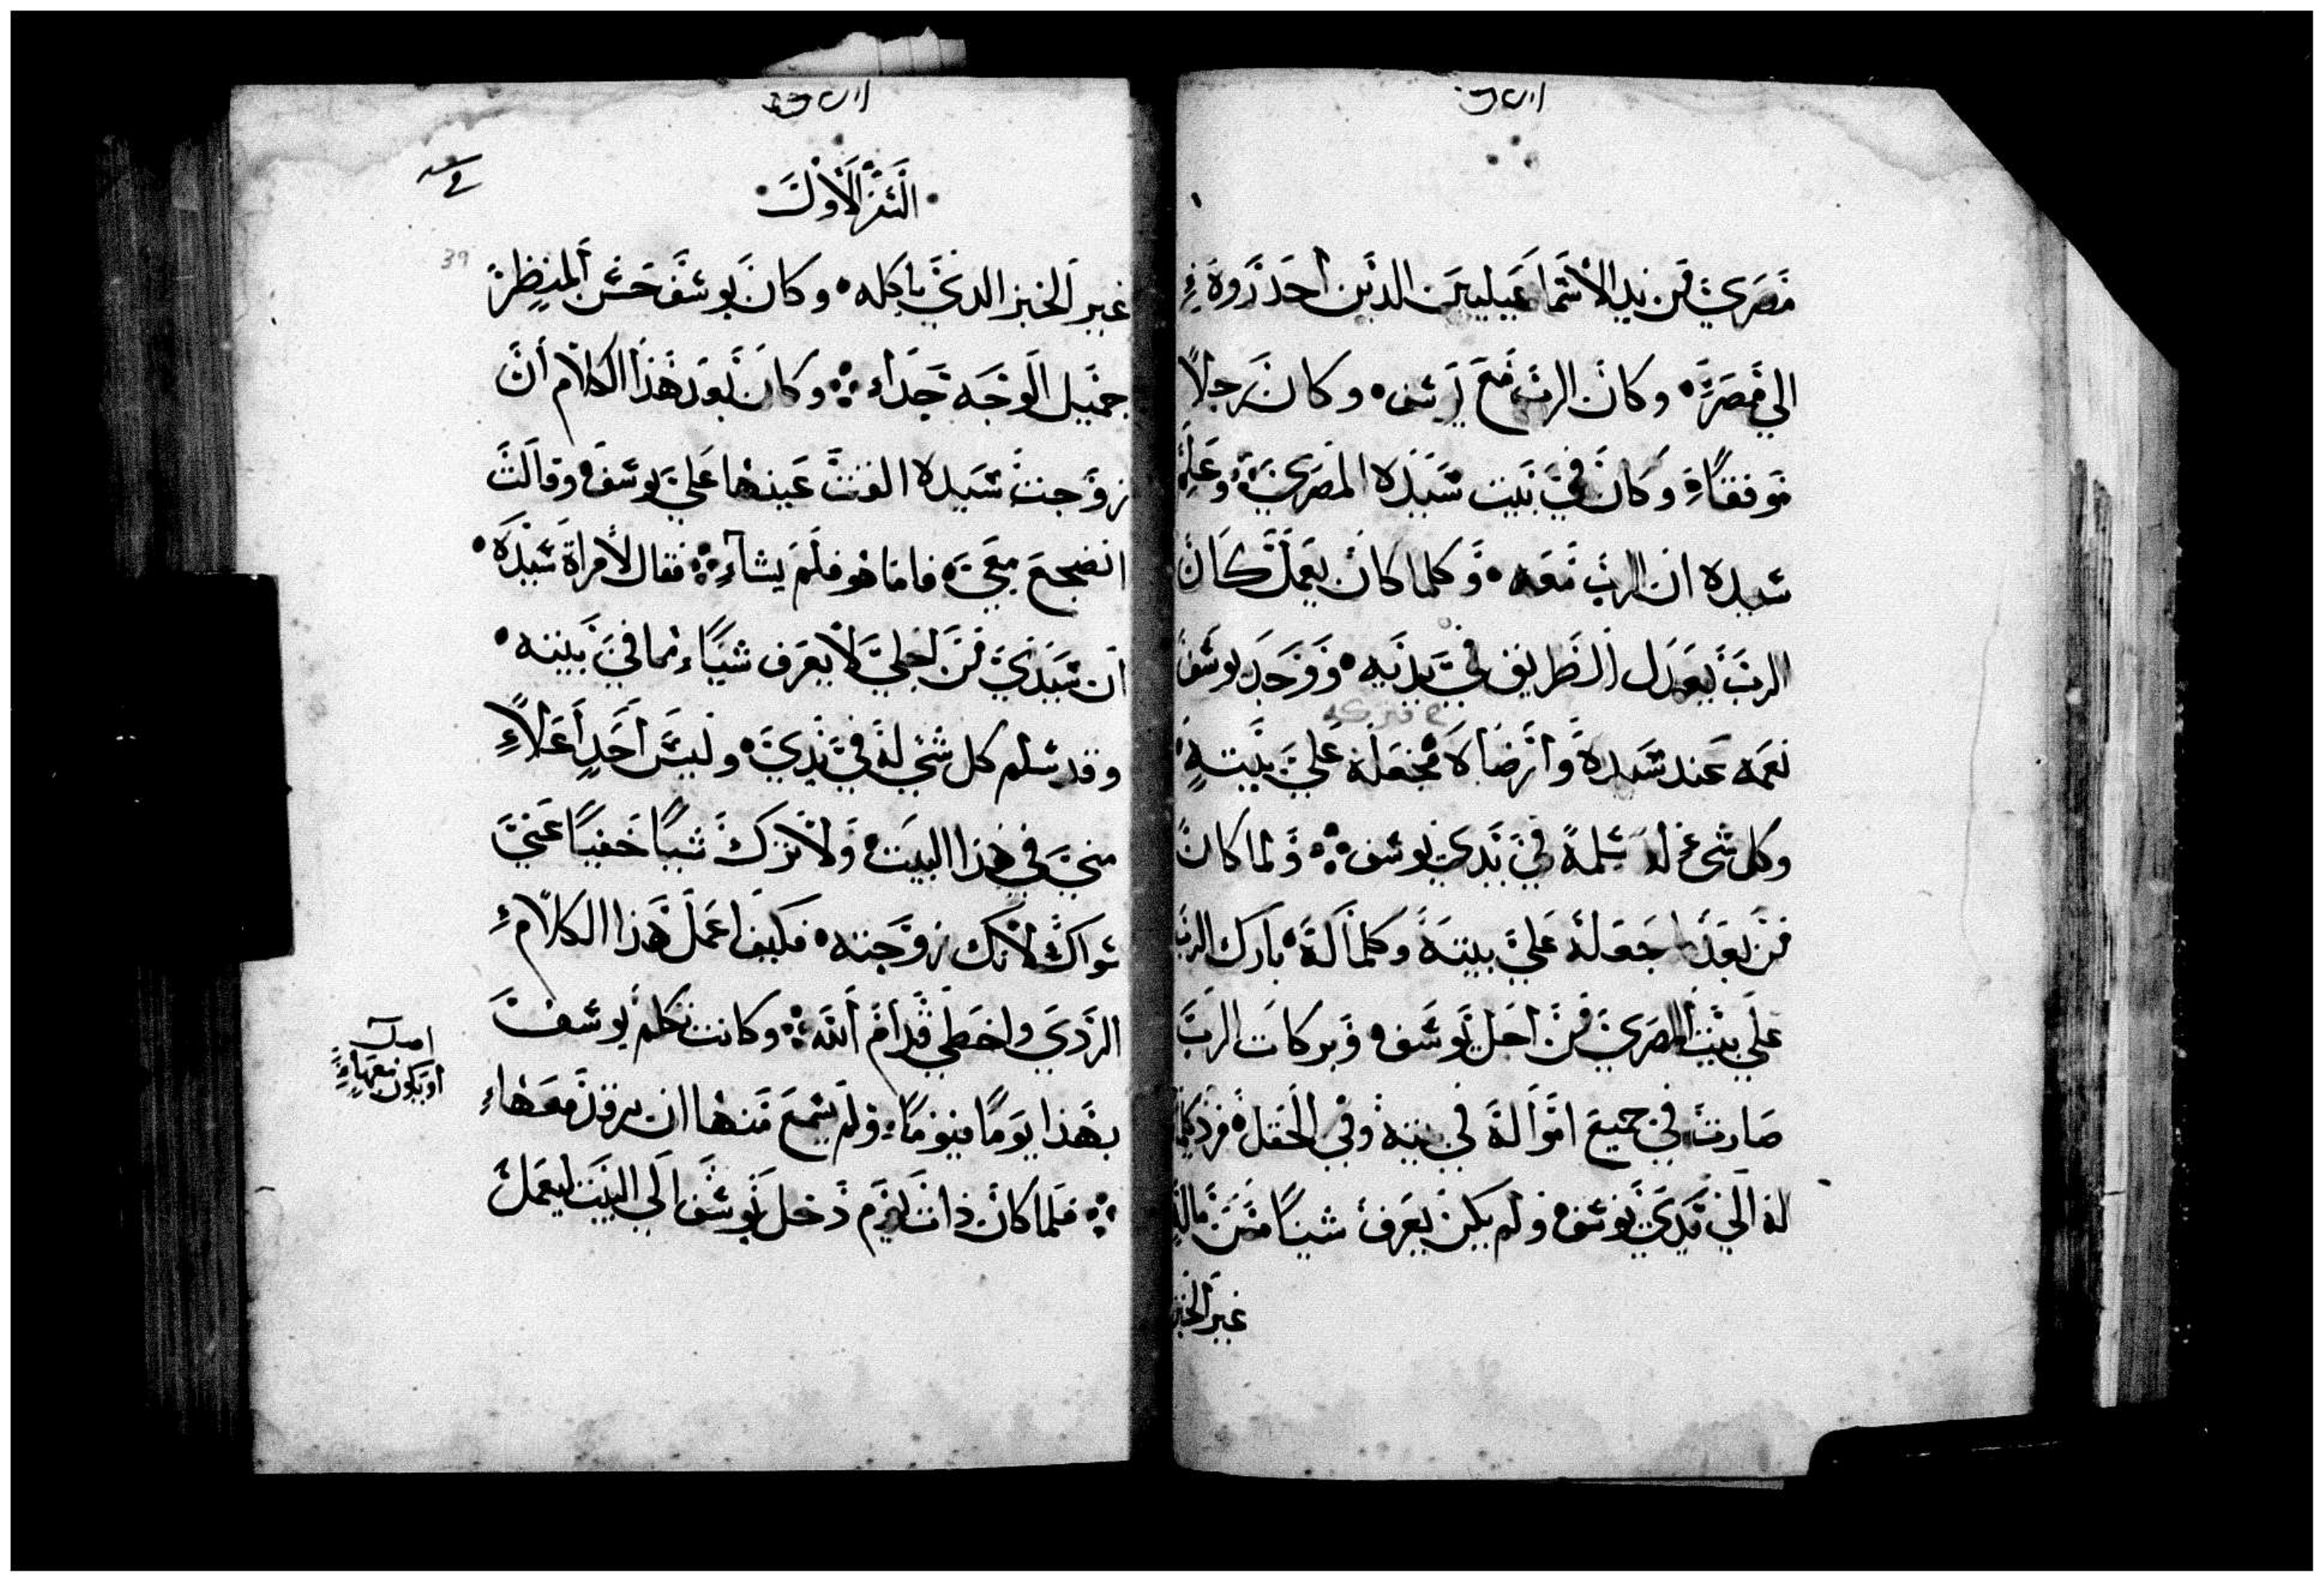 مصري من يد الأسماعيليين الدين أحدروه
الي مصر وكان الرب مع يوسف وكان رجلاً
موفقاً وكان في بيت سيده المصري وعلم
سيده ان الرب معه وكلما كان يعمل كان
الرب يعدل الطريق في يديه ووجد يوسف
نعمه عند سيده وأرضاه فجعله علي بيته
وكل شي له سلمه في يدي يوسف ولما كان
من بعد ما جعله علي بيته وكلما له بارك الرب
علي بيت المصري من اجل يوسف وبركات الرب
صارت في جميع امواله في بيته وفي الحقل
له الي يدي يوسف ولم يكن يعرف شياً
غير الخبز
السفر الاول
39
غير الخبز الدي ياكله وكان يوسف حسن المنظر
جميل الوجه جداً وكان بعد هذا الكلام أن
زوجت سيده القت عينها علي يوسف وقالت
انضجع معي فاما هو فلم يشاء فقال لأمراة سيده
ان سيدي من اجلي لا يعرف شياً مما في بيته
وقد سلم كل شي له في يدي وليس أحد أعلا
مني في هذا البيت ولا ترك شياً خفياً عني
سواك لانك زوجته فكيف اعمل هذا الكلام
الردي واخطي قدام الله وكانت تكلم يوسف
بهذا يوماً فيوماً ولم يسمع منها ان يرقد معها
فلما كان ذات يوم دخل يوسف الي البيت ليعمل
اصل
او يكون معها